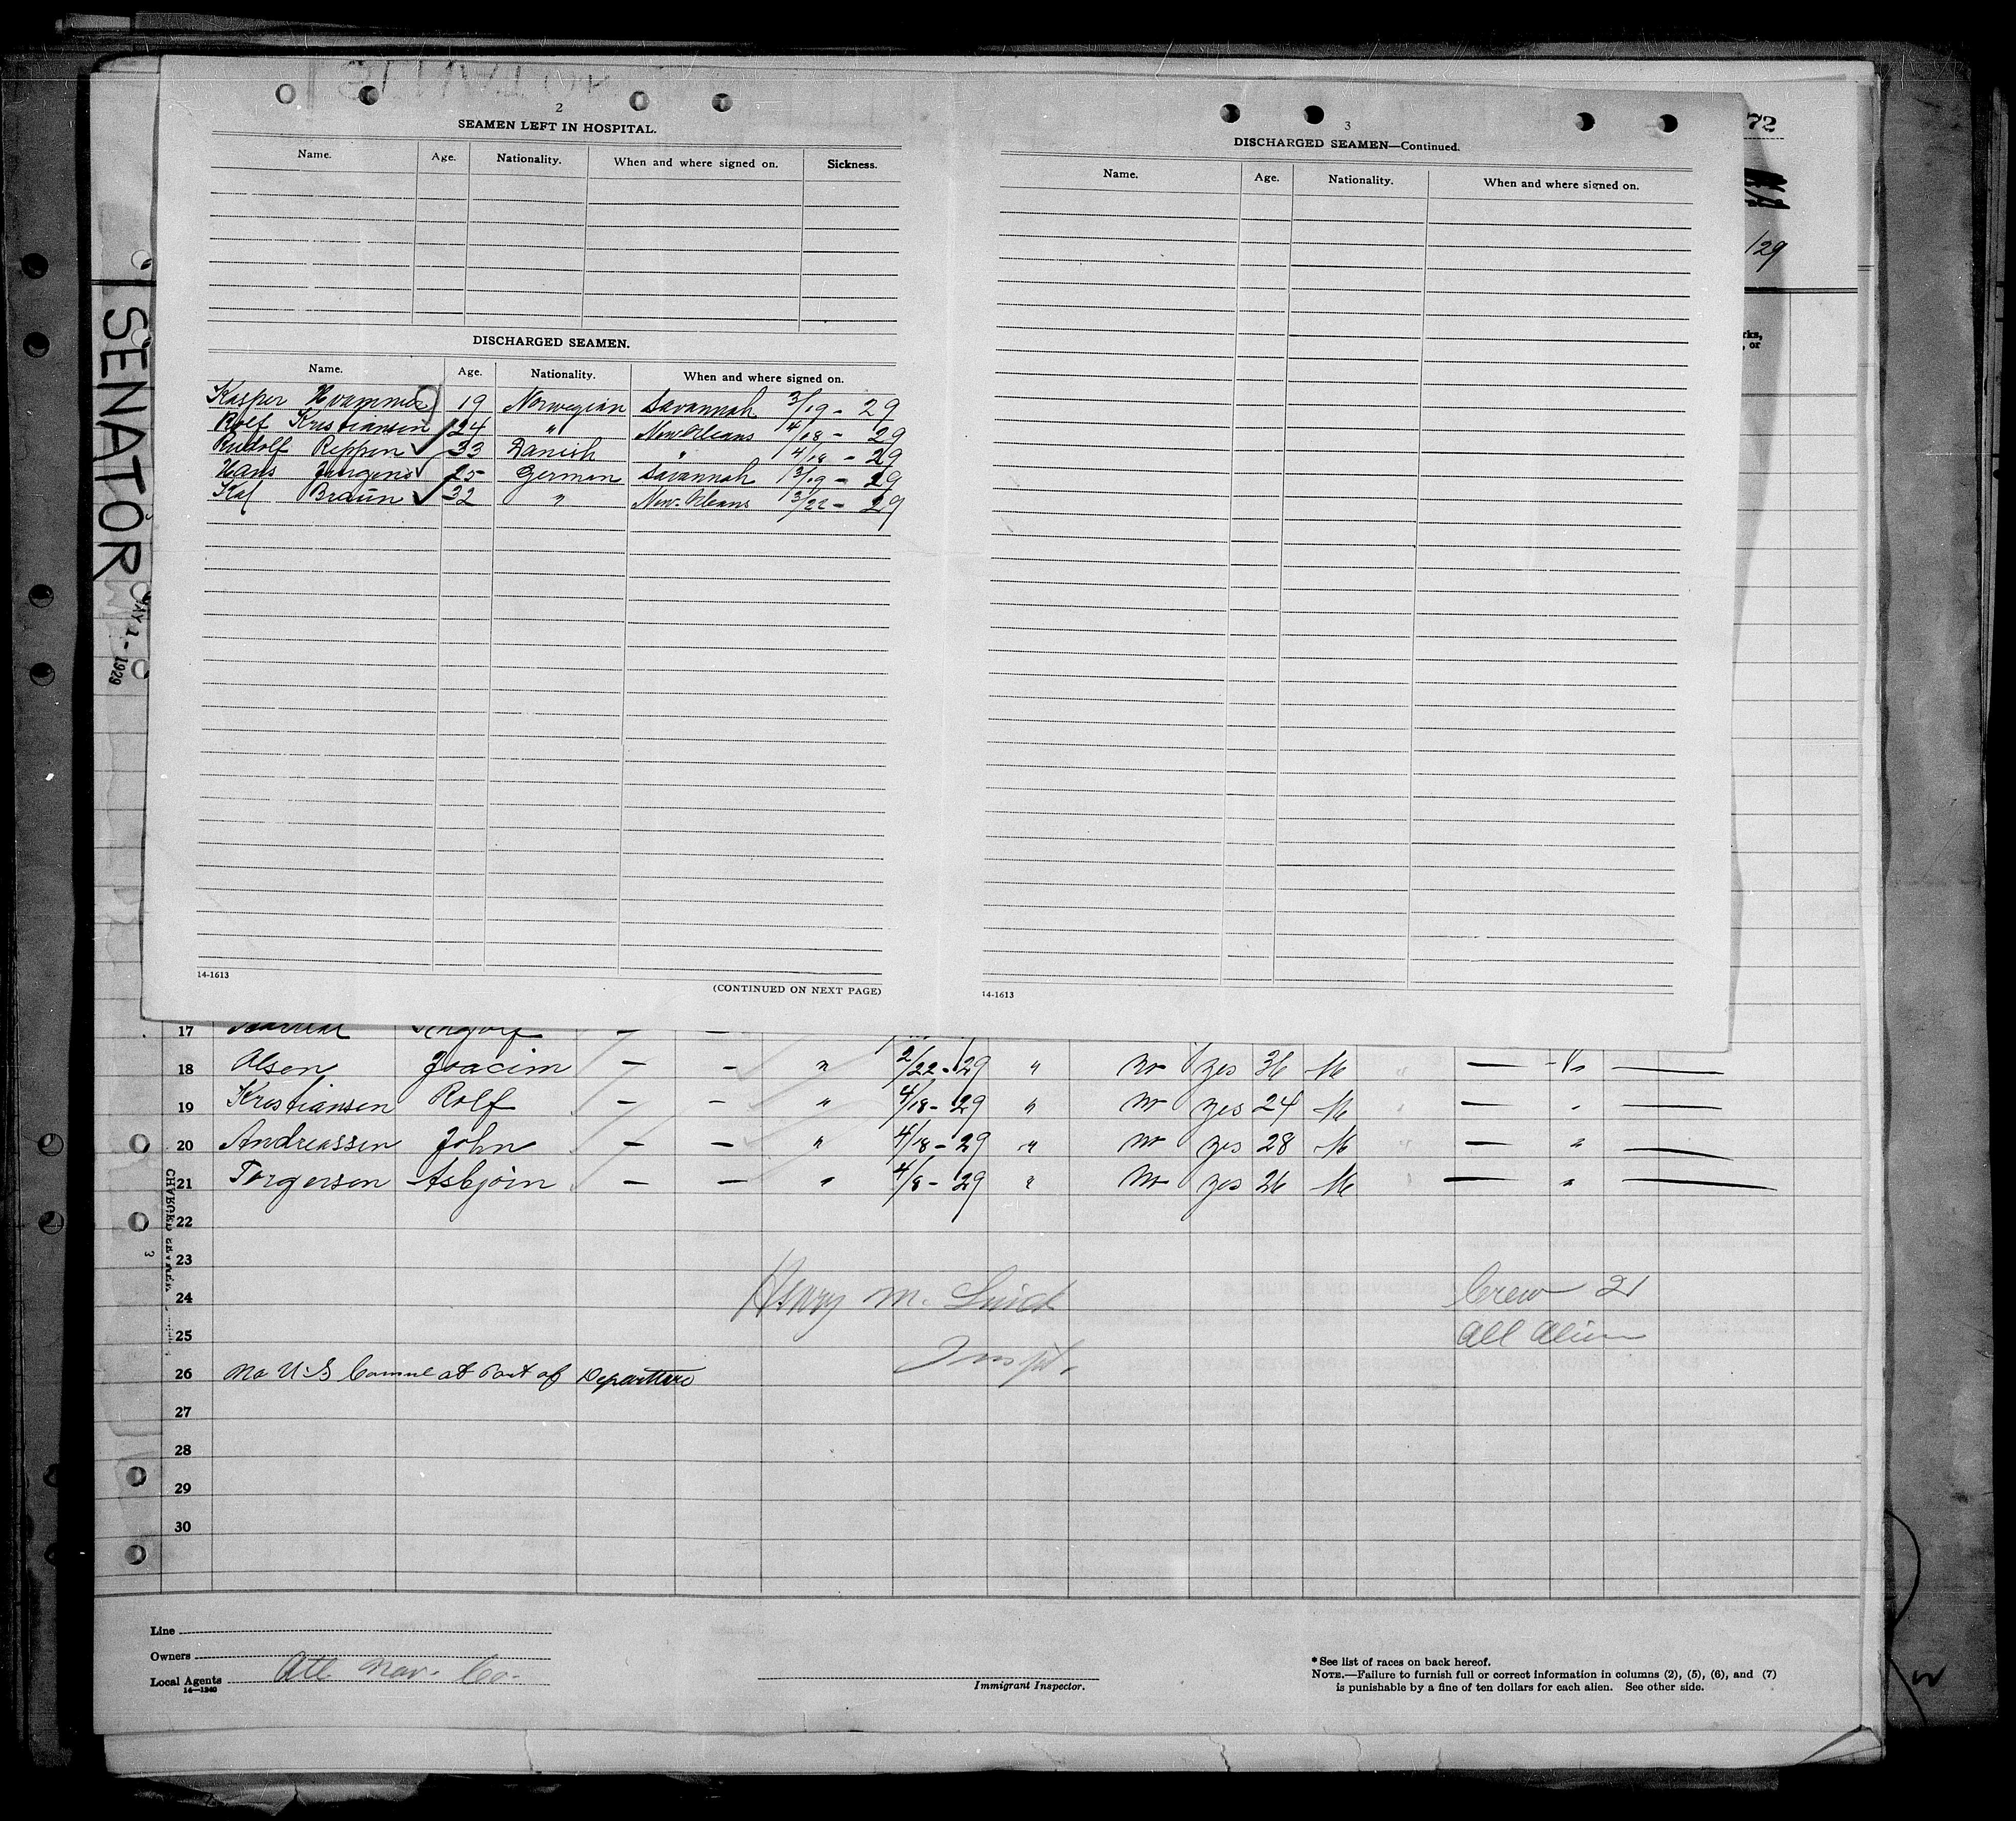 72
/29
"SENATOR
MAY 1 - 1929
2
SEAMEN LEFT IN HOSPITAL.
Name. Age. Nationality. When and where signed on. Sickness.
DISCHARGED SEAMEN.
Name. Age. Nationality. When and where signed on.
Kasper 19 Norwegian Savannah 3/19 - 29
Rolf Kristiansen 24 " New Orleans 4/18 - 29
Rudolf Reppen 33 Danish " 4/18 - 29
Hans Jurgens 25 German Savannah 3/19 - 29
Braun 32 " New-Orleans 3/22 - 29
14-1613
(CONTINUED ON NEXT PAGE)
3
DISCHARGED SEAMEN—Continued.
Name. Age. Nationality. When and where signed on.
14-1613
rks,
, or
17 — -
18 Olsen Joacim — - " 2/22-29 " no yes 36 M — —
19 Kristiansen Rolf — - " 4/18-29 " no yes 24 M — " —
20 Andreassen John — - " 4/18-29 " no yes 28 M — " —
21 Torgersen Asbjörn — - " 4/8-29 " no yes 26 M — " —
22
23
24 Henry M. Crew 21
25 Inspt. All Alien
26 No U.S Consul at Port of Departure
27
28
29
30
3
Line
Owners
Local Agents Atl Nav. Co.
14—1240
Immigrant Inspector.
*See list of races on back hereof.
NOTE.—Failure to furnish full or correct information in columns (2), (5), (6), and (7)
is punishable by a fine of ten dollars for each alien. See other side.